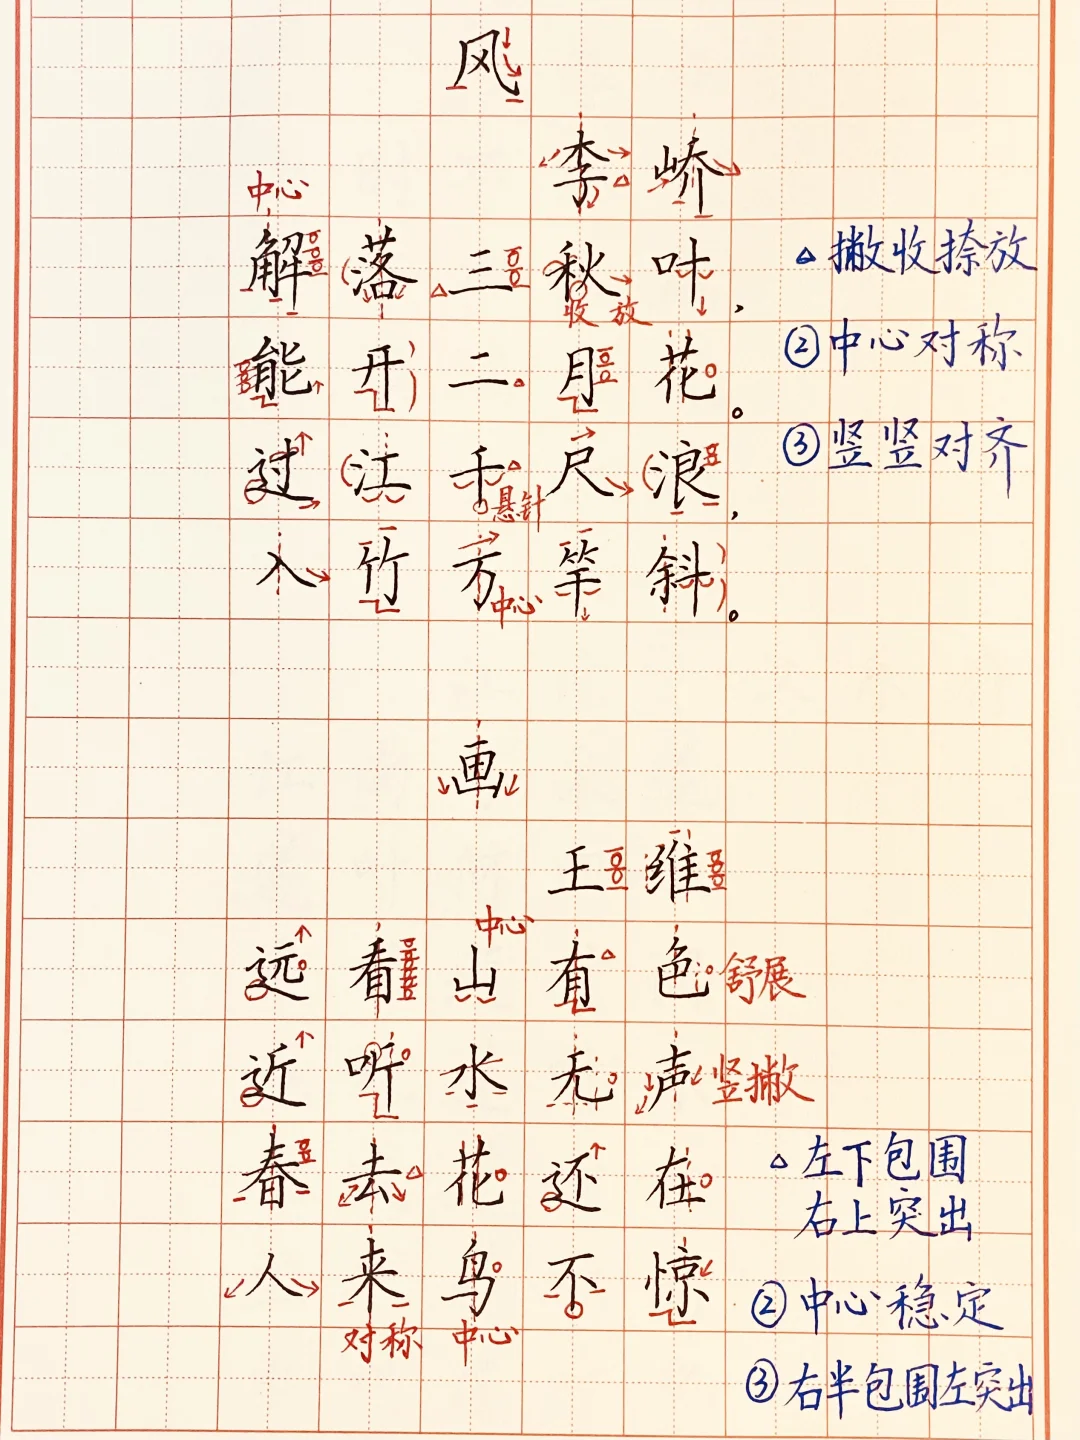 风
李峤
中心
解落三秋叶，
收 放
△撇收捺放
能开二月花。
②中心对称
过江千尺浪，
悬针
③竖竖对齐
入竹万竿斜。
中心
画
王维
中心
远看山有色
舒展
近听水无声
竖撇
春去花还在
△左下包围
右上突出
人来鸟不惊
对称 中心
②中心稳定
③右半包围左突出